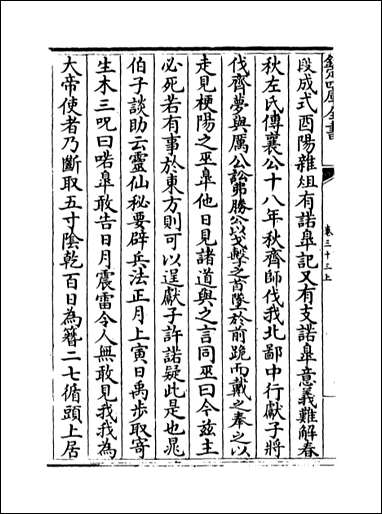 欽定四庫全書
卷三十三上
段成式酉陽雜俎有諾臯記又有支諾臯意義難解春
秋左氏傳襄公十八年秋齊師伐我北鄙中行獻子將
伐齊夢與厲公訟弗勝公以戈擊之首墜於前跪而戴之奉之以
走見梗陽之巫臯他日見諸道與之言同巫曰今兹主
必死若有事於東方則可以逞獻子許諾疑此是也晁
伯子談助云靈仙秘要辟兵法正月上寅日禹步取寄
生木三呪曰喏臯敢告日月震雷令人無敢見我我為
大帝使者乃斷取五寸陰乾百日為簪二七循頭上居